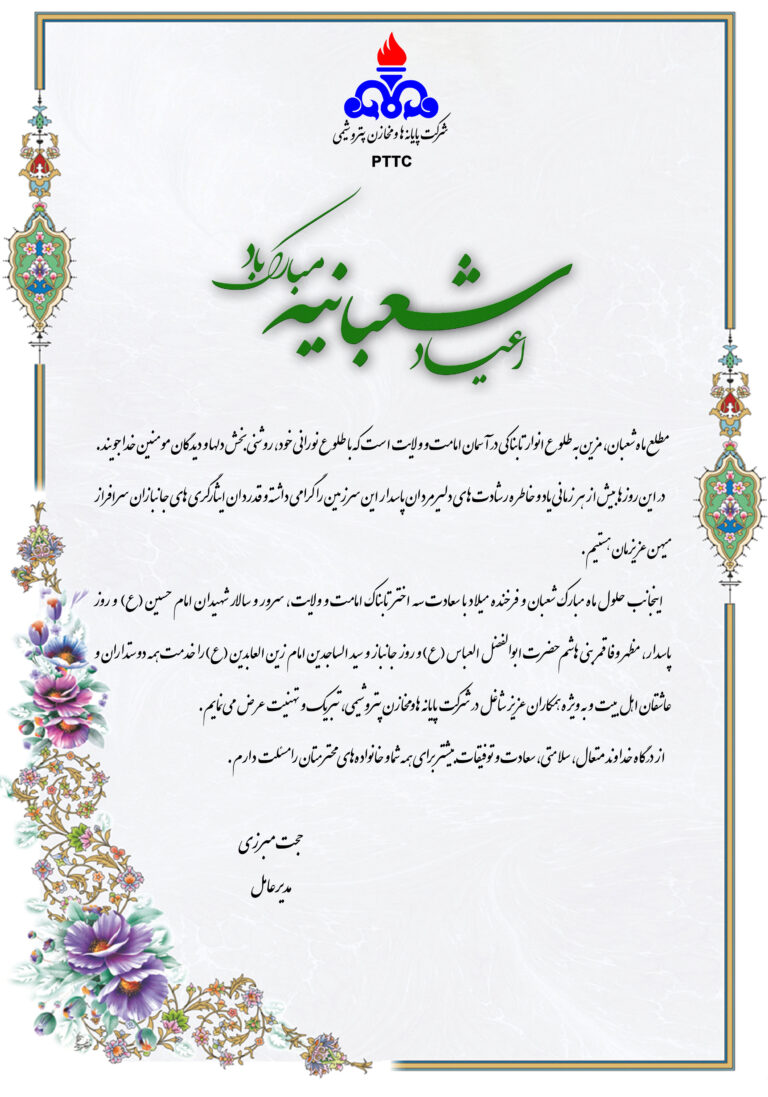 شرکت پایانه ها و مخازن پتروشیمی
PTTC
اعیاد شعبانیه مبارک باد
مطلع ماه شعبان، مزین به طلوع انوار تابناکی در آسمان امامت و ولایت است که با طلوع نورانی خود، روشنی بخش دلها و دیدگان مومنین خداجویند.
در این روزها بیش از هر زمانی یاد و خاطره رشادت های دلیرمردان پاسدار این سرزمین را گرامی داشته و قدردان ایثارگری های جانبازان سرافراز
میهن عزیزمان هستیم .
اینجانب حلول ماه مبارک شعبان و فرخنده میلاد با سعادت سه اختر تابناک امامت و ولایت، سرور و سالار شهیدان امام حسین (ع) و روز
پاسدار، مظهر وفا قمر بنی هاشم حضرت ابوالفضل العباس (ع) و روز جانباز و سید الساجدین امام زین العابدین (ع) را خدمت همه دوستداران و
عاشقان اهل بیت و به ویژه همکاران عزیز شاغل در شرکت پایانه ها و مخازن پتروشیمی، تبریک و تهنیت عرض می نمایم .
از درگاه خداوند متعال، سلامتی، سعادت و توفیقات بیشتر برای همه شما و خانواده های محترمتان را مسئلت دارم .
حجت مبرزی
مدیرعامل